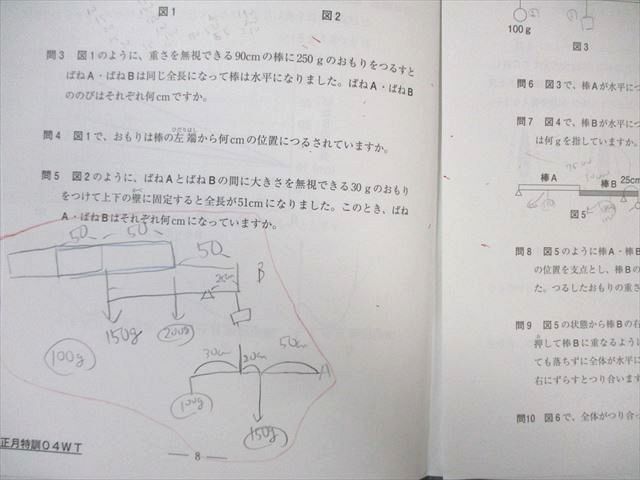 図1
図2
問3 図1のように、重さを無視できる90cmの棒に250gのおもりをつるすと
ばねA・ばねBは同じ全長になって棒は水平になりました。ばねA・ばねB
ののびはそれぞれ何cmですか。
問4 図1で、おもりは棒の左端から何cmの位置につるされていますか。
ひだりはし
問5 図2のように、ばねAとばねBの間に大きさを無視できる30gのおもり
をつけて上下の壁に固定すると全長が51cmになりました。このとき、ばね
かべ
A・ばねBはそれぞれ何cmになっていますか。
50
50
50
B
150g
200g
100g
30cm
20cm
50cm
A
100g
150g
正月特訓04WT
— 8 —
100g
図3
問6 図3で、棒Aが水平につ
問7 図4で、棒Bが水平につ
は何gを指していますか。
棒A
棒B
25cm
図5
問8 図5のように棒A・棒
の位置を支点とし、棒Bの
た。つるしたおもりの重さ
問9 図5の状態から棒Bの右
押して棒Bに重なるように
ても落ちずに全体が水平に
右にずらすとつり合います
問10 図6で、全体がつり合っ